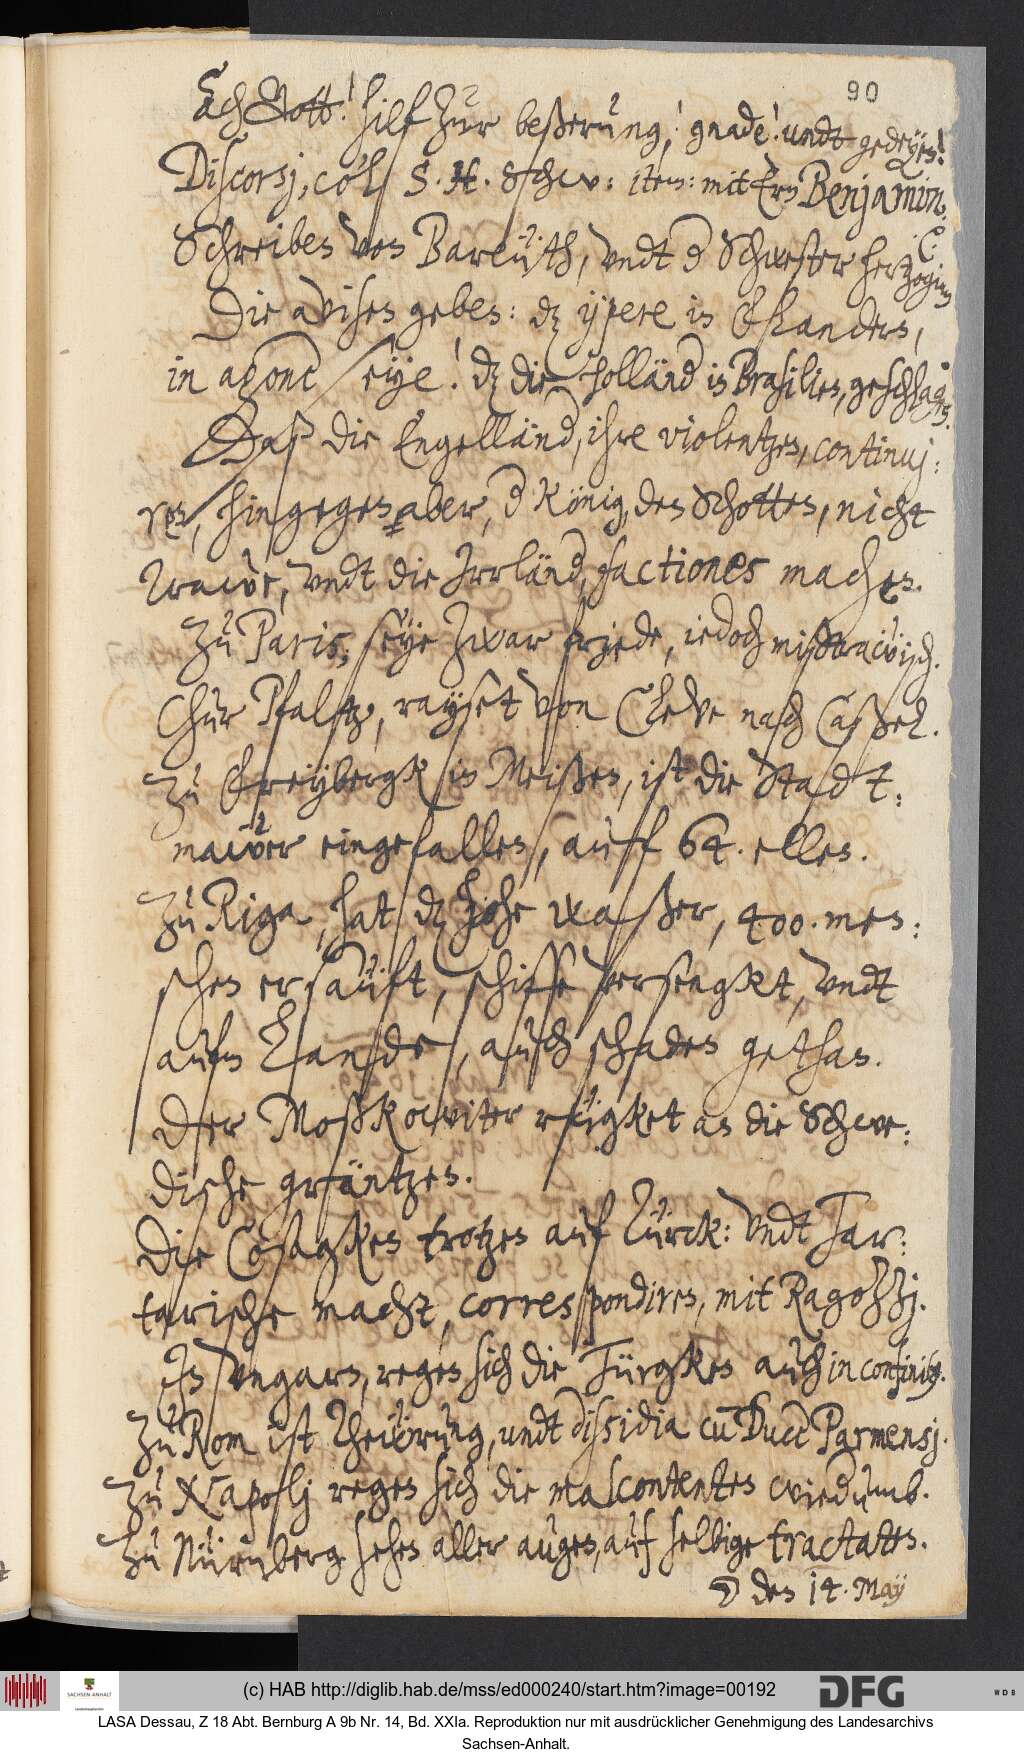 90
Ach Gott! hilf zur beßerung,! gnade! undt gedeyen!
Discorsj, col S. H. Schw: item: mit Ern Benjamin.
Schreiben von Bareüth, vndt d Schwester herzogin
Die avisen geben: dz ypere in Flandern,
in agone seye! dz die Holländ in Brasilien, geschlagen.
Daß die Engelländ, ihre violentzen, continuj:
ren, hingegen aber, d König, den Schotten, nicht
trawe, vndt die Irrländ, factiones machen.
Zu Paris, seye zwar friede, iedoch mißtrawisch.
Chur Pfaltz, rayset von Cleve nach Caßel.
Zu Freybergk in Meißen, ist die Stadt:
mawer eingefallen, auff 64. ellen.
Zu Riga, hat dz hohe waßer, 400. men:
schen ersäuft, schiffe versengkt, vndt
aufm Lande, auch schaden gethan.
Der Moßkowiter rügket an die Schwe:
dische gräntzen.
Die Cosagken trotzen auf Türck: vndt Tar:
tarische macht, correspondiren, mit Ragozzj.
In Vngarn, regen sich die Türgken auch in confinibus.
Zu Rom ist Thewrung, undt dissidia cum Duce Parmensj.
Zu Napolj regen sich die malcontenten wiedumb.
Zu Nürnberg sehen aller augen, auf selbige tractaten.
☽ den 14. May
(c) HAB http://diglib.hab.de/mss/ed000240/start.htm?image=00192
SACHSEN-ANHALT
DFG
WDB
LASA Dessau, Z 18 Abt. Bernburg A 9b Nr. 14, Bd. XXIa. Reproduktion nur mit ausdrücklicher Genehmigung des Landesarchivs
Sachsen-Anhalt.